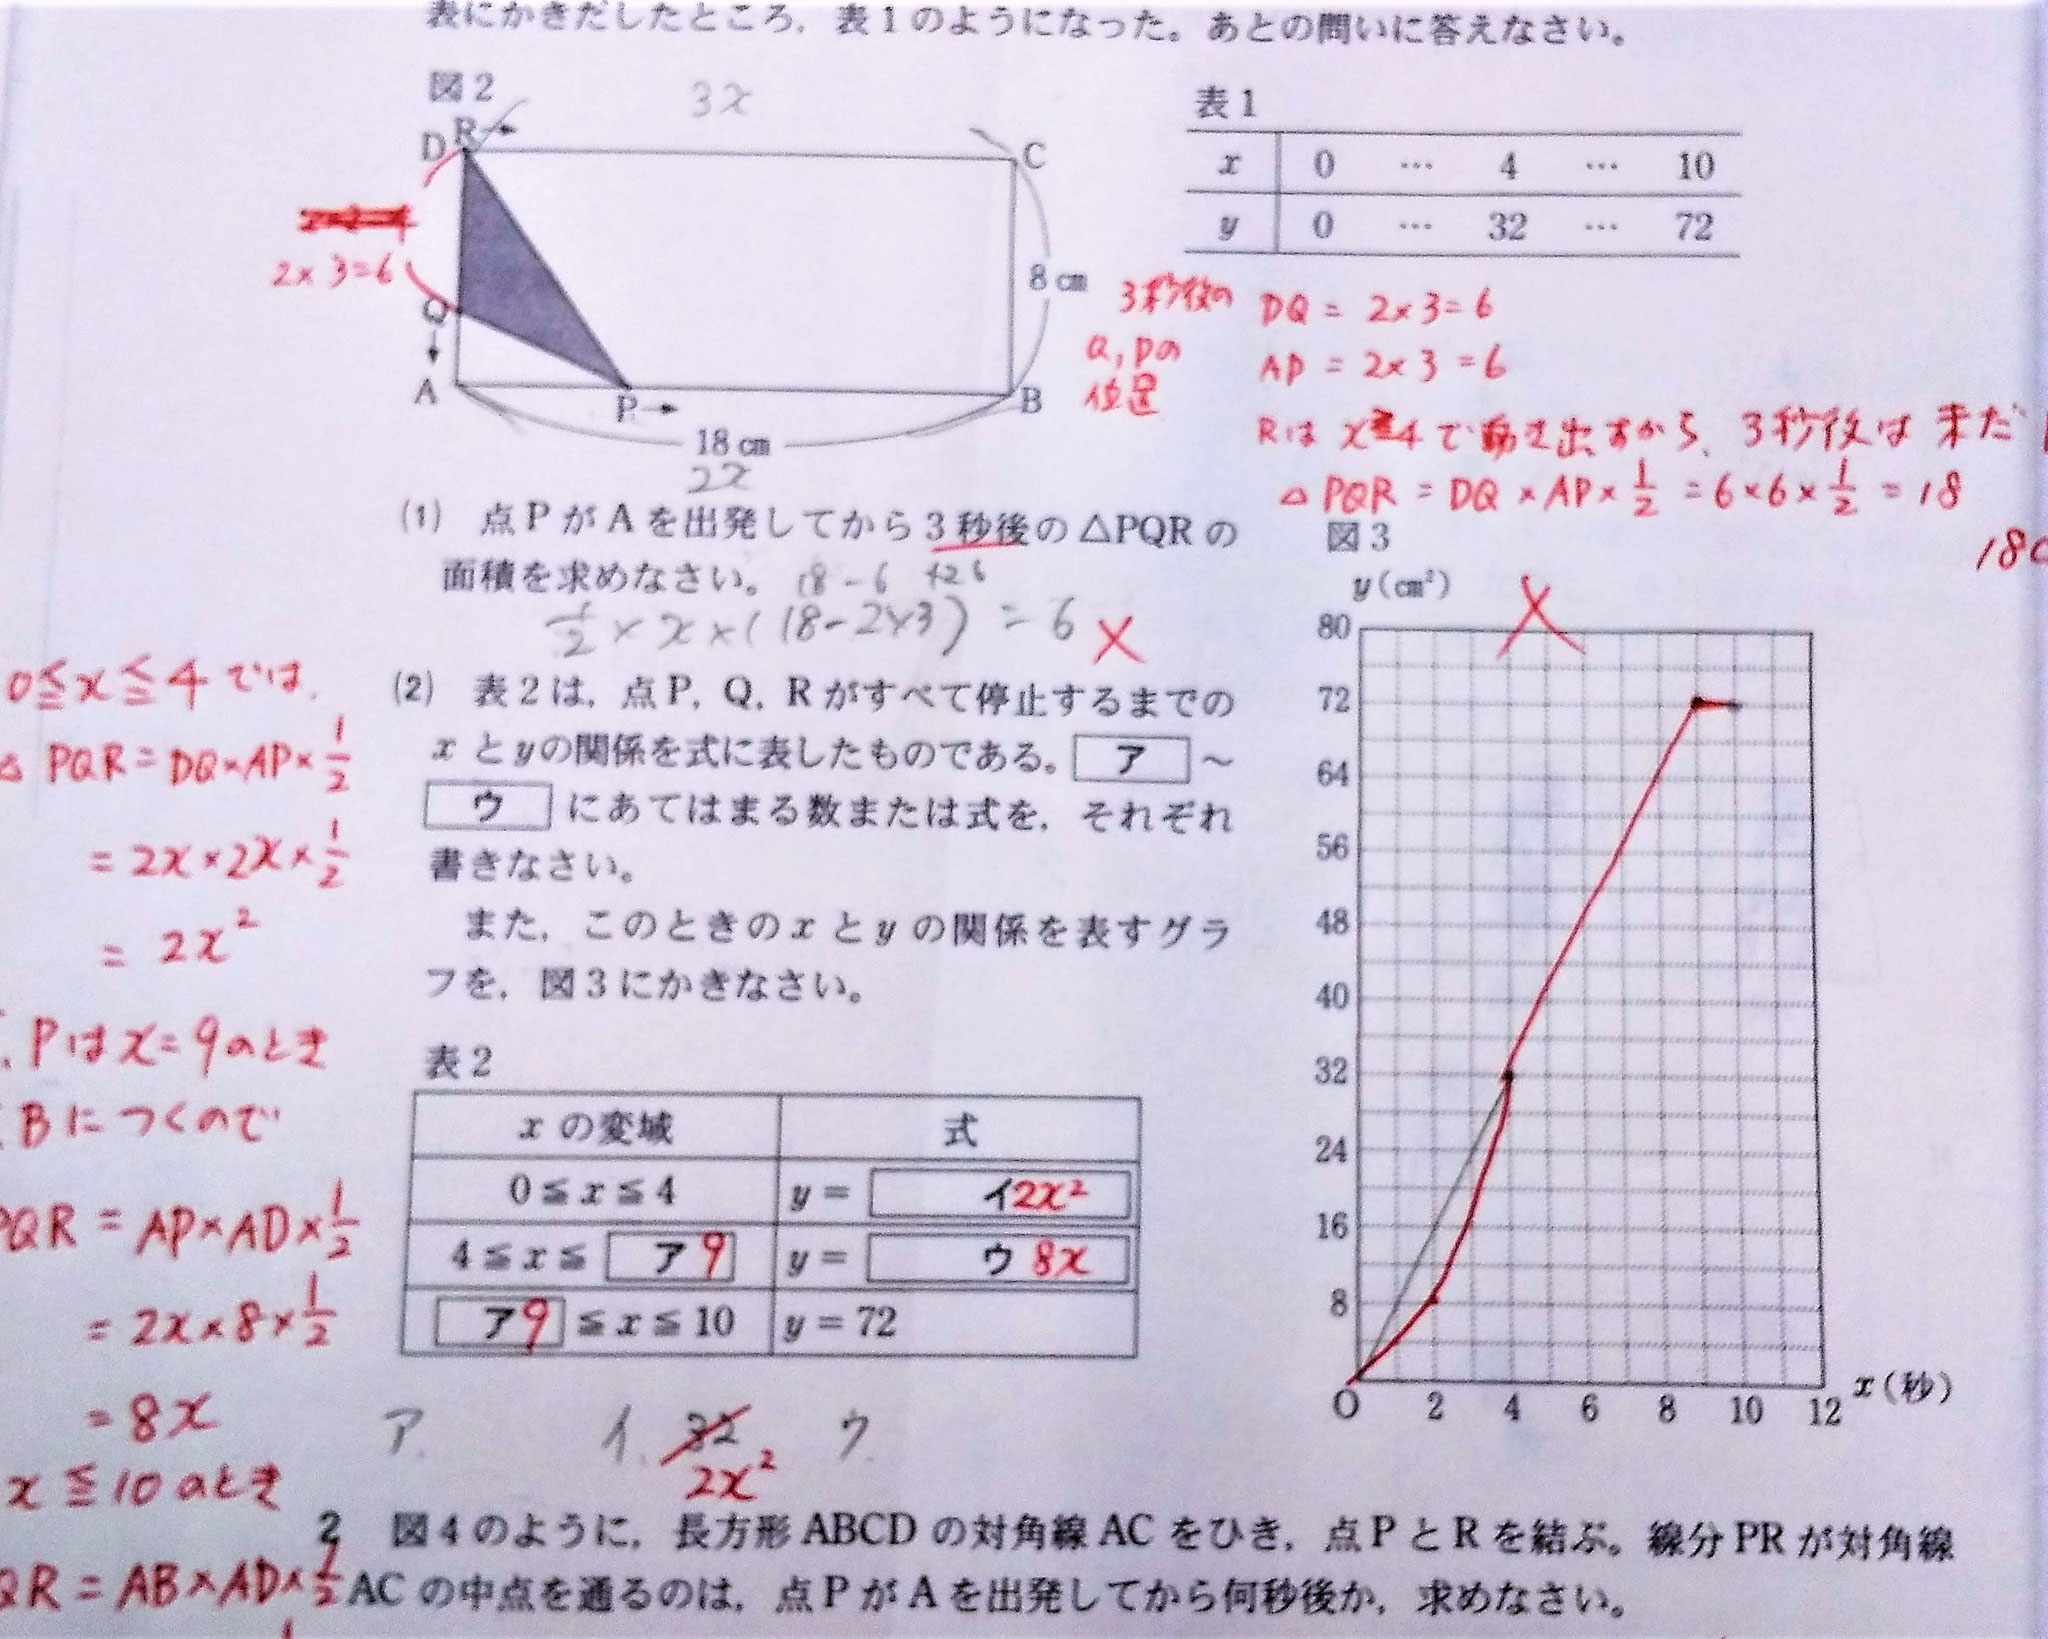 表にかきだしたところ，表1のようになった。あとの問いに答えなさい。
図2
3x
D R
C
2×3=6
Q
A
P
B
8cm
18cm
2x
表1
x 0 … 4 … 10
y 0 … 32 … 72
3秒後の
Q, Pの
位置
DQ = 2×3=6
AP = 2×3=6
Rは x=4で動き出すから、3秒後は未だ
△PQR = DQ×AP×1/2 = 6×6×1/2 = 18
(1) 点PがAを出発してから3秒後の△PQRの
面積を求めなさい。
18-6
1/2 × x ×(18-2×3) = 6 ×
(2) 表2は，点P，Q，Rがすべて停止するまでの
xとyの関係を式に表したものである。ア～
ウにあてはまる数または式を，それぞれ
書きなさい。
また，このときのxとyの関係を表すグラ
フを，図3にかきなさい。
0≦x≦4では
△PQR=DQ×AP×1/2
=2x×2x×1/2
= 2x²
Pはx=9のとき
Bにつくので
PQR = AP×AD×1/2
= 2x×8×1/2
= 8x
x≦10のとき
QR = AB×AD×1/2
表2
xの変域 式
0≦x≦4 y= イ2x²
4≦x≦ ア9 y= ウ 8x
ア9 ≦x≦10 y=72
ア． イ．32 ウ．
2x²
図3
y(cm²)
×
80
72
64
56
48
40
32
24
16
8
O 2 4 6 8 10 12 x(秒)
2 図4のように，長方形ABCDの対角線ACをひき，点PとRを結ぶ。線分PRが対角線
ACの中点を通るのは，点PがAを出発してから何秒後か，求めなさい。